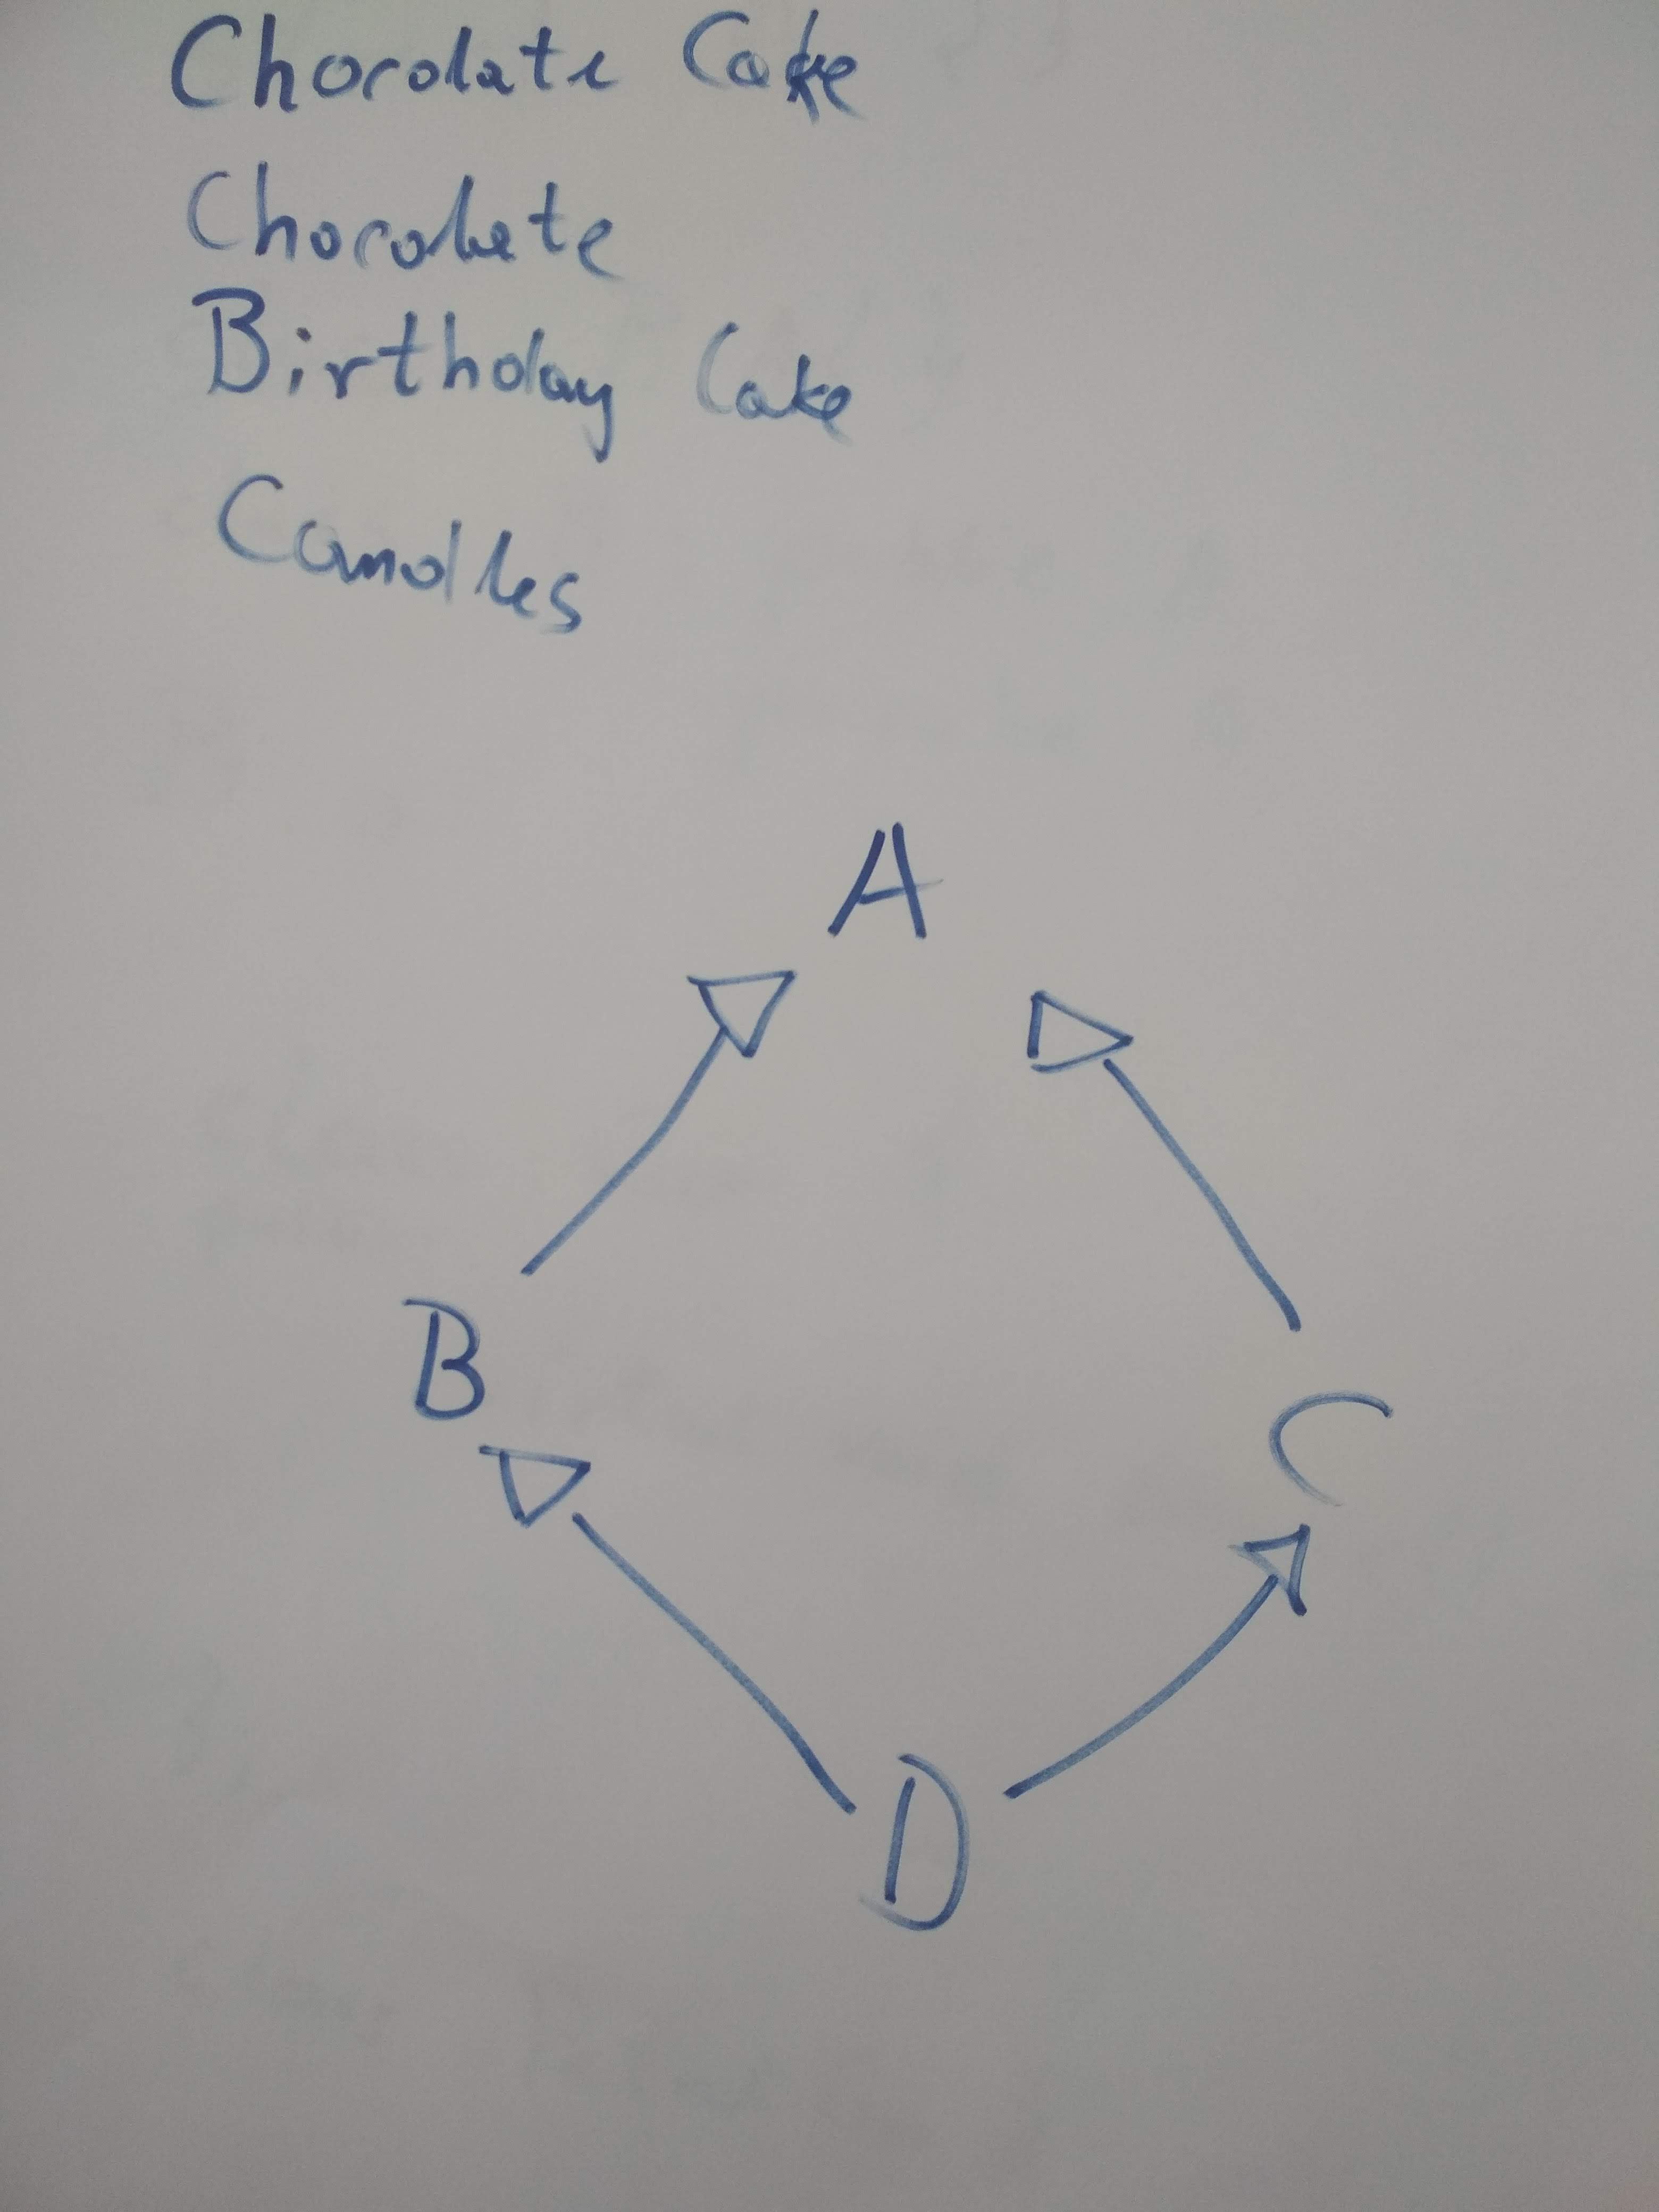 Chocolate Cake
Chocolate
Birthday Cake
Candles
A
B
C
D